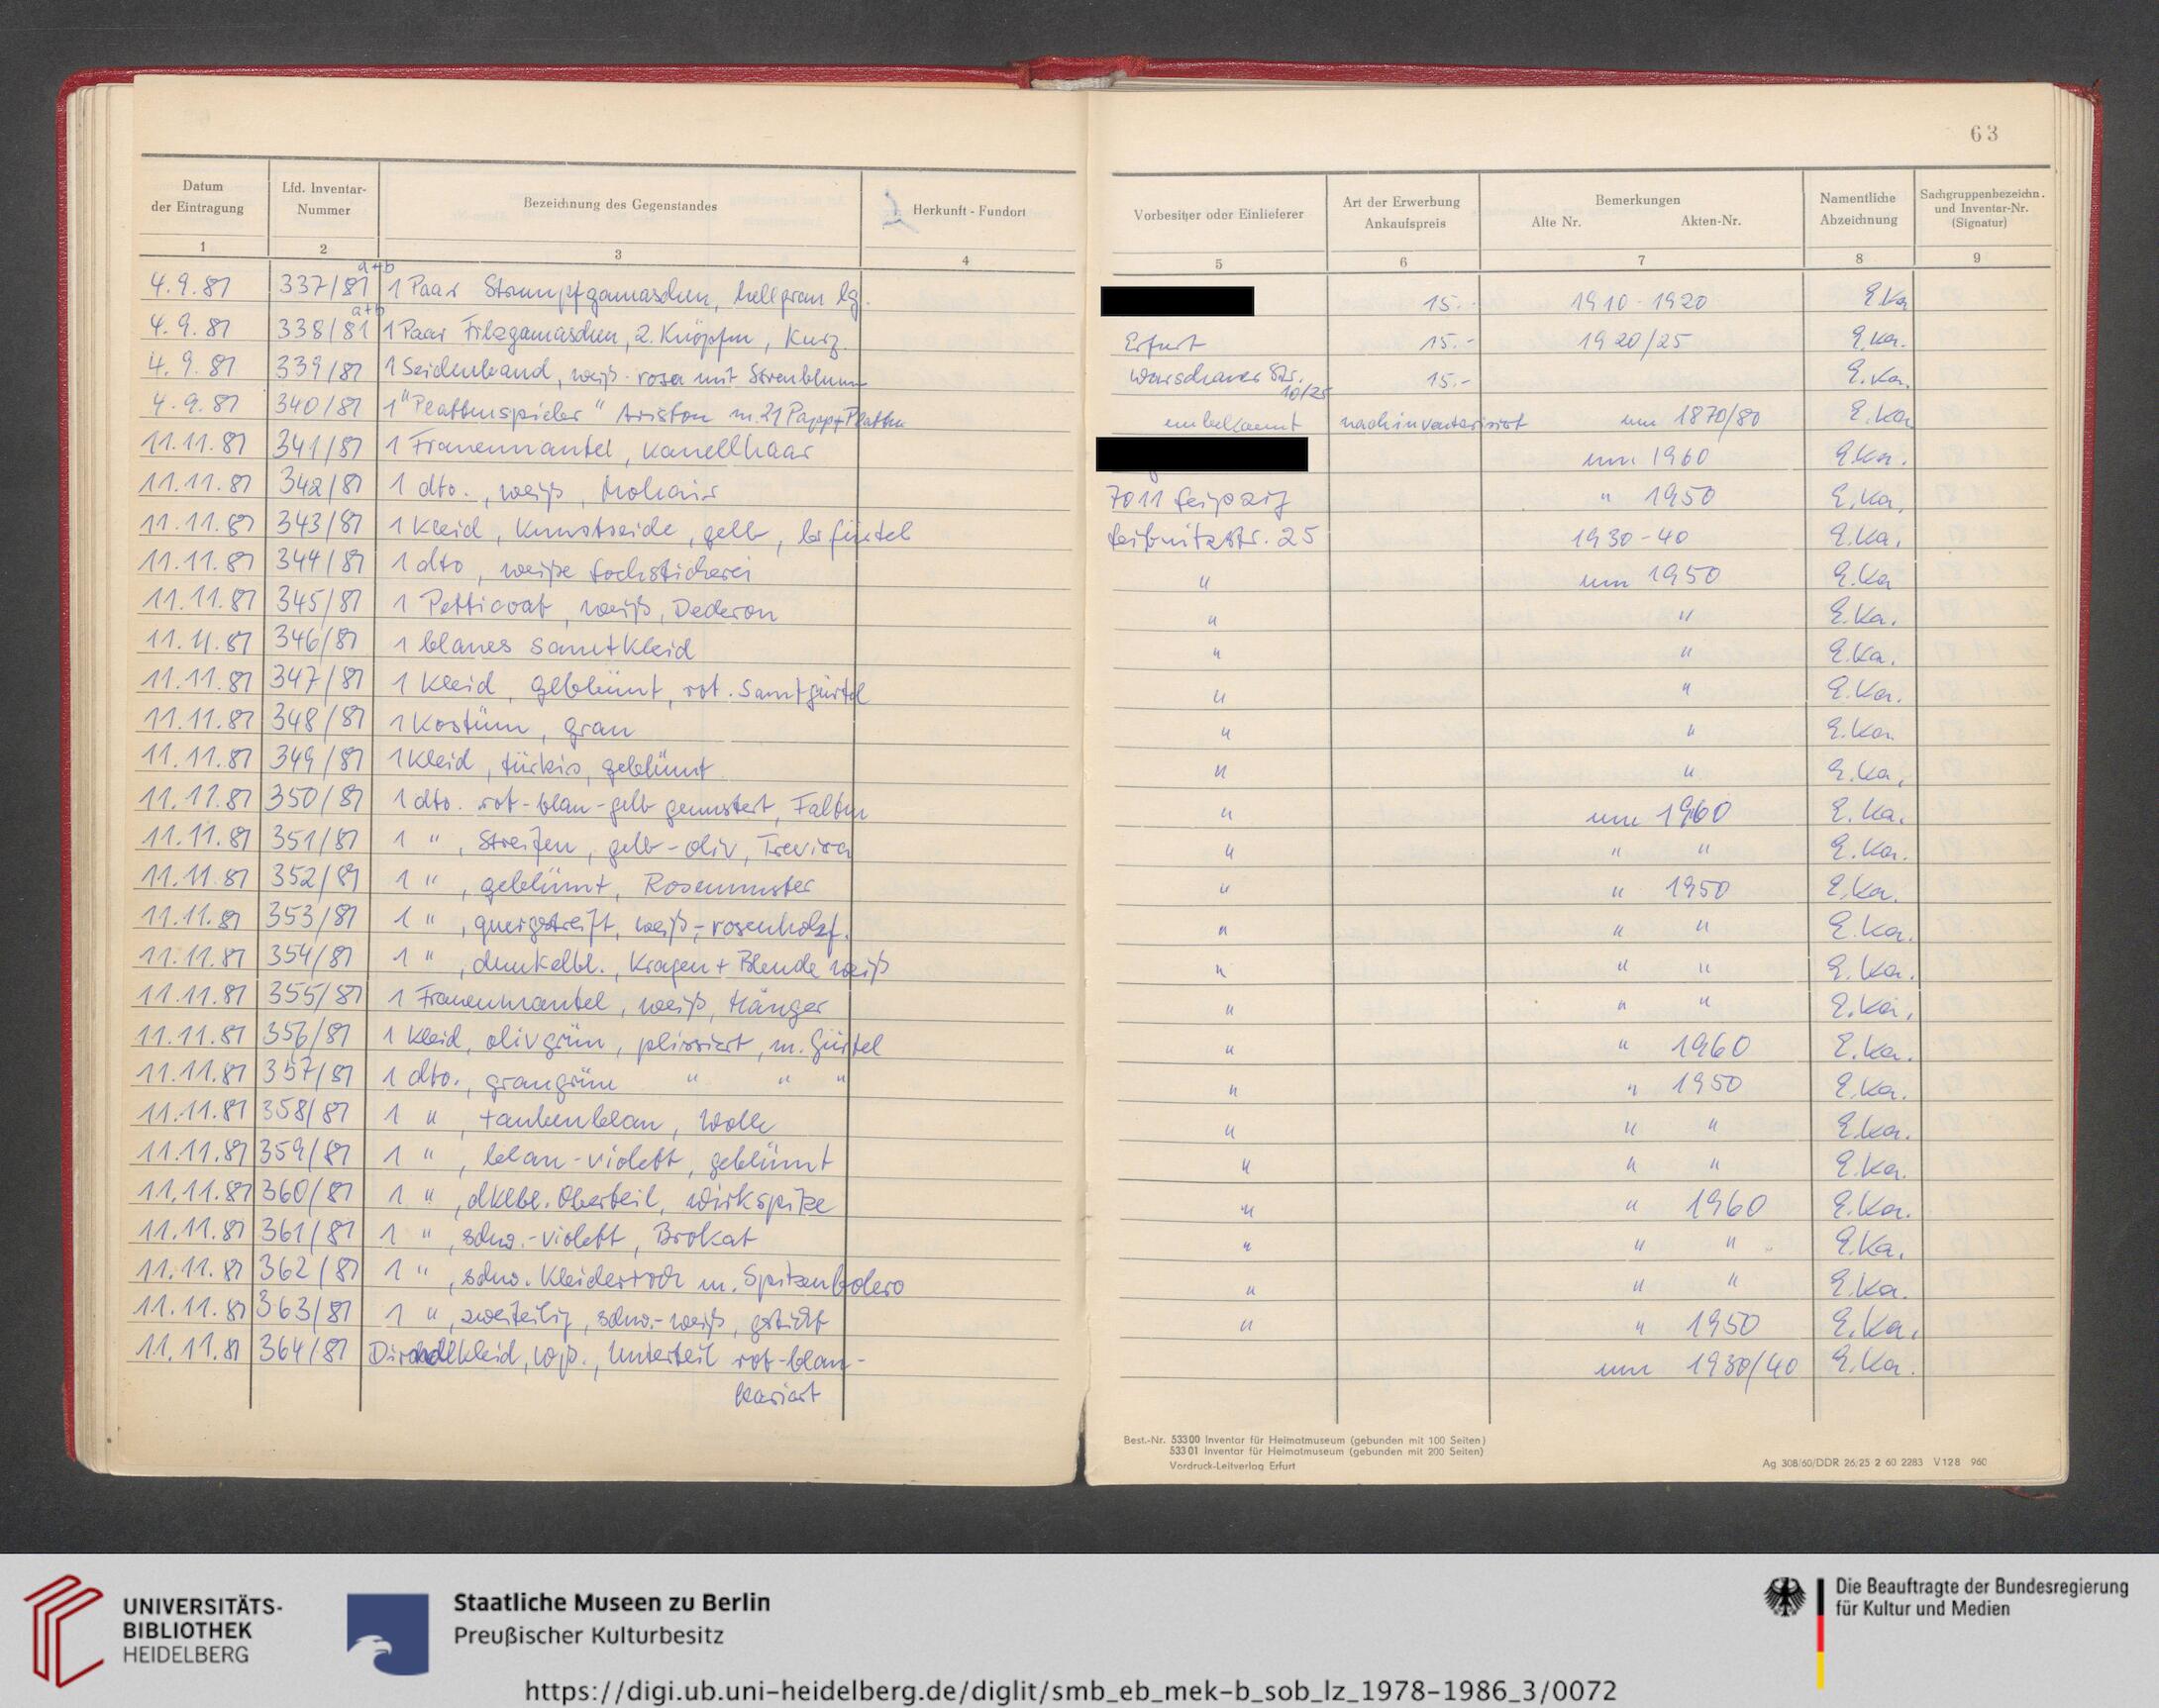 63
Datum der Eintragung | Lfd. Inventar-Nummer | Bezeichnung des Gegenstandes | Herkunft - Fundort | Vorbesitzer oder Einlieferer | Art der Erwerbung Ankaufspreis | Bemerkungen Alte Nr. Akten-Nr. | Namentliche Abzeichnung | Sachgruppenbezeichn. und Inventar-Nr. (Signatur)
1 | 2 | 3 | 4 | 5 | 6 | 7 | 8 | 9
4.9.81 | 337/81 a+b | 1 Paar Strumpfgamaschen, hellgrau lg. | 15.- | 1910-1920 | E.Ka
4.9.81 | 338/81 a+b | 1 Paar Filzgamaschen, z. Knöpfen, Kurz. | Erfurt | 15.- | 1920/25 | E.Ka.
4.9.81 | 339/81 | 1 Seidenband, weiß-rosa mit Streublumen | Warschauer Str. 10/25 | 15.- | E.Ka.
4.9.81 | 340/81 | 1 "Plattenspieler" Ariston m. 21 Papp+Platten | unbekannt | nachinventarisiert | um 1870/80 | E.Ka
11.11.81 | 341/81 | 1 Frauenmantel, Kamelhaar | um 1960 | E.Ka.
11.11.81 | 342/81 | 1 dto., weiß, Mohair | 7011 Leipzig | " 1950 | E.Ka.
11.11.81 | 343/81 | 1 Kleid, Kunstseide, gelb, Gürtel | Leibnitzstr. 25 | 1930-40 | E.Ka.
11.11.81 | 344/81 | 1 dto, weiße Lochstickerei | " | um 1950 | E.Ka
11.11.81 | 345/81 | 1 Petticoat, weiß, Dederon | " | " | E.Ka.
11.11.81 | 346/81 | 1 blaues Samtkleid | " | " | E.Ka.
11.11.81 | 347/81 | 1 Kleid, geblümt, rot. Samtgürtel | " | " | E.Ka.
11.11.81 | 348/81 | 1 Kostüm, grau | " | " | E.Ka.
11.11.81 | 349/81 | 1 Kleid, türkis, geblümt | " | " | E.Ka.
11.11.81 | 350/81 | 1 dto. rot-blau-gelb gemustert, Falten | " | um 1960 | E.Ka.
11.11.81 | 351/81 | 1 ", Streifen, gelb-oliv, Trevira | " | " " | E.Ka.
11.11.81 | 352/81 | 1 ", geblümt, Rosenmuster | " | " 1950 | E.Ka.
11.11.81 | 353/81 | 1 ", quergestreift, weiß-rosenholzf. | " | " " | E.Ka.
11.11.81 | 354/81 | 1 ", dunkelbl., Kragen + Blende weiß | " | " " | E.Ka.
11.11.81 | 355/81 | 1 Frauenmantel, weiß, Hänger | " | " " | E.Ka.
11.11.81 | 356/81 | 1 Kleid, olivgrün, plissiert, m. Gürtel | " | " 1960 | E.Ka.
11.11.81 | 357/81 | 1 dto., graugrün " " " | " | " 1950 | E.Ka.
11.11.81 | 358/81 | 1 ", taubenblau, Wolle | " | " " | E.Ka.
11.11.81 | 359/81 | 1 ", blau-violett, geblümt | " | " " | E.Ka.
11.11.81 | 360/81 | 1 ", dklbl. Oberteil, Wirkspitze | " | " 1960 | E.Ka.
11.11.81 | 361/81 | 1 ", schw.-violett, Brokat | " | " " | E.Ka.
11.11.81 | 362/81 | 1 ", schw. Kleiderrock m. Spitzenbolero | " | " " | E.Ka.
11.11.81 | 363/81 | 1 ", zweiteilig, schw.-weiß, gestickt | " | " 1950 | E.Ka.
11.11.81 | 364/81 | Dirndlkleid, wß., Unterteil rot-blau- | um 1930/40 | E.Ka.
kariert
Best.-Nr. 53300 Inventar für Heimatmuseum (gebunden mit 100 Seiten)
53301 Inventar für Heimatmuseum (gebunden mit 200 Seiten)
Vordruck-Leitverlag Erfurt
Ag 308/60/DDR 26/25 2 60 2283 V128 960
UNIVERSITÄTS-
BIBLIOTHEK
HEIDELBERG
Staatliche Museen zu Berlin
Preußischer Kulturbesitz
Die Beauftragte der Bundesregierung
für Kultur und Medien
https://digi.ub.uni-heidelberg.de/diglit/smb_eb_mek-b_sob_lz_1978-1986_3/0072